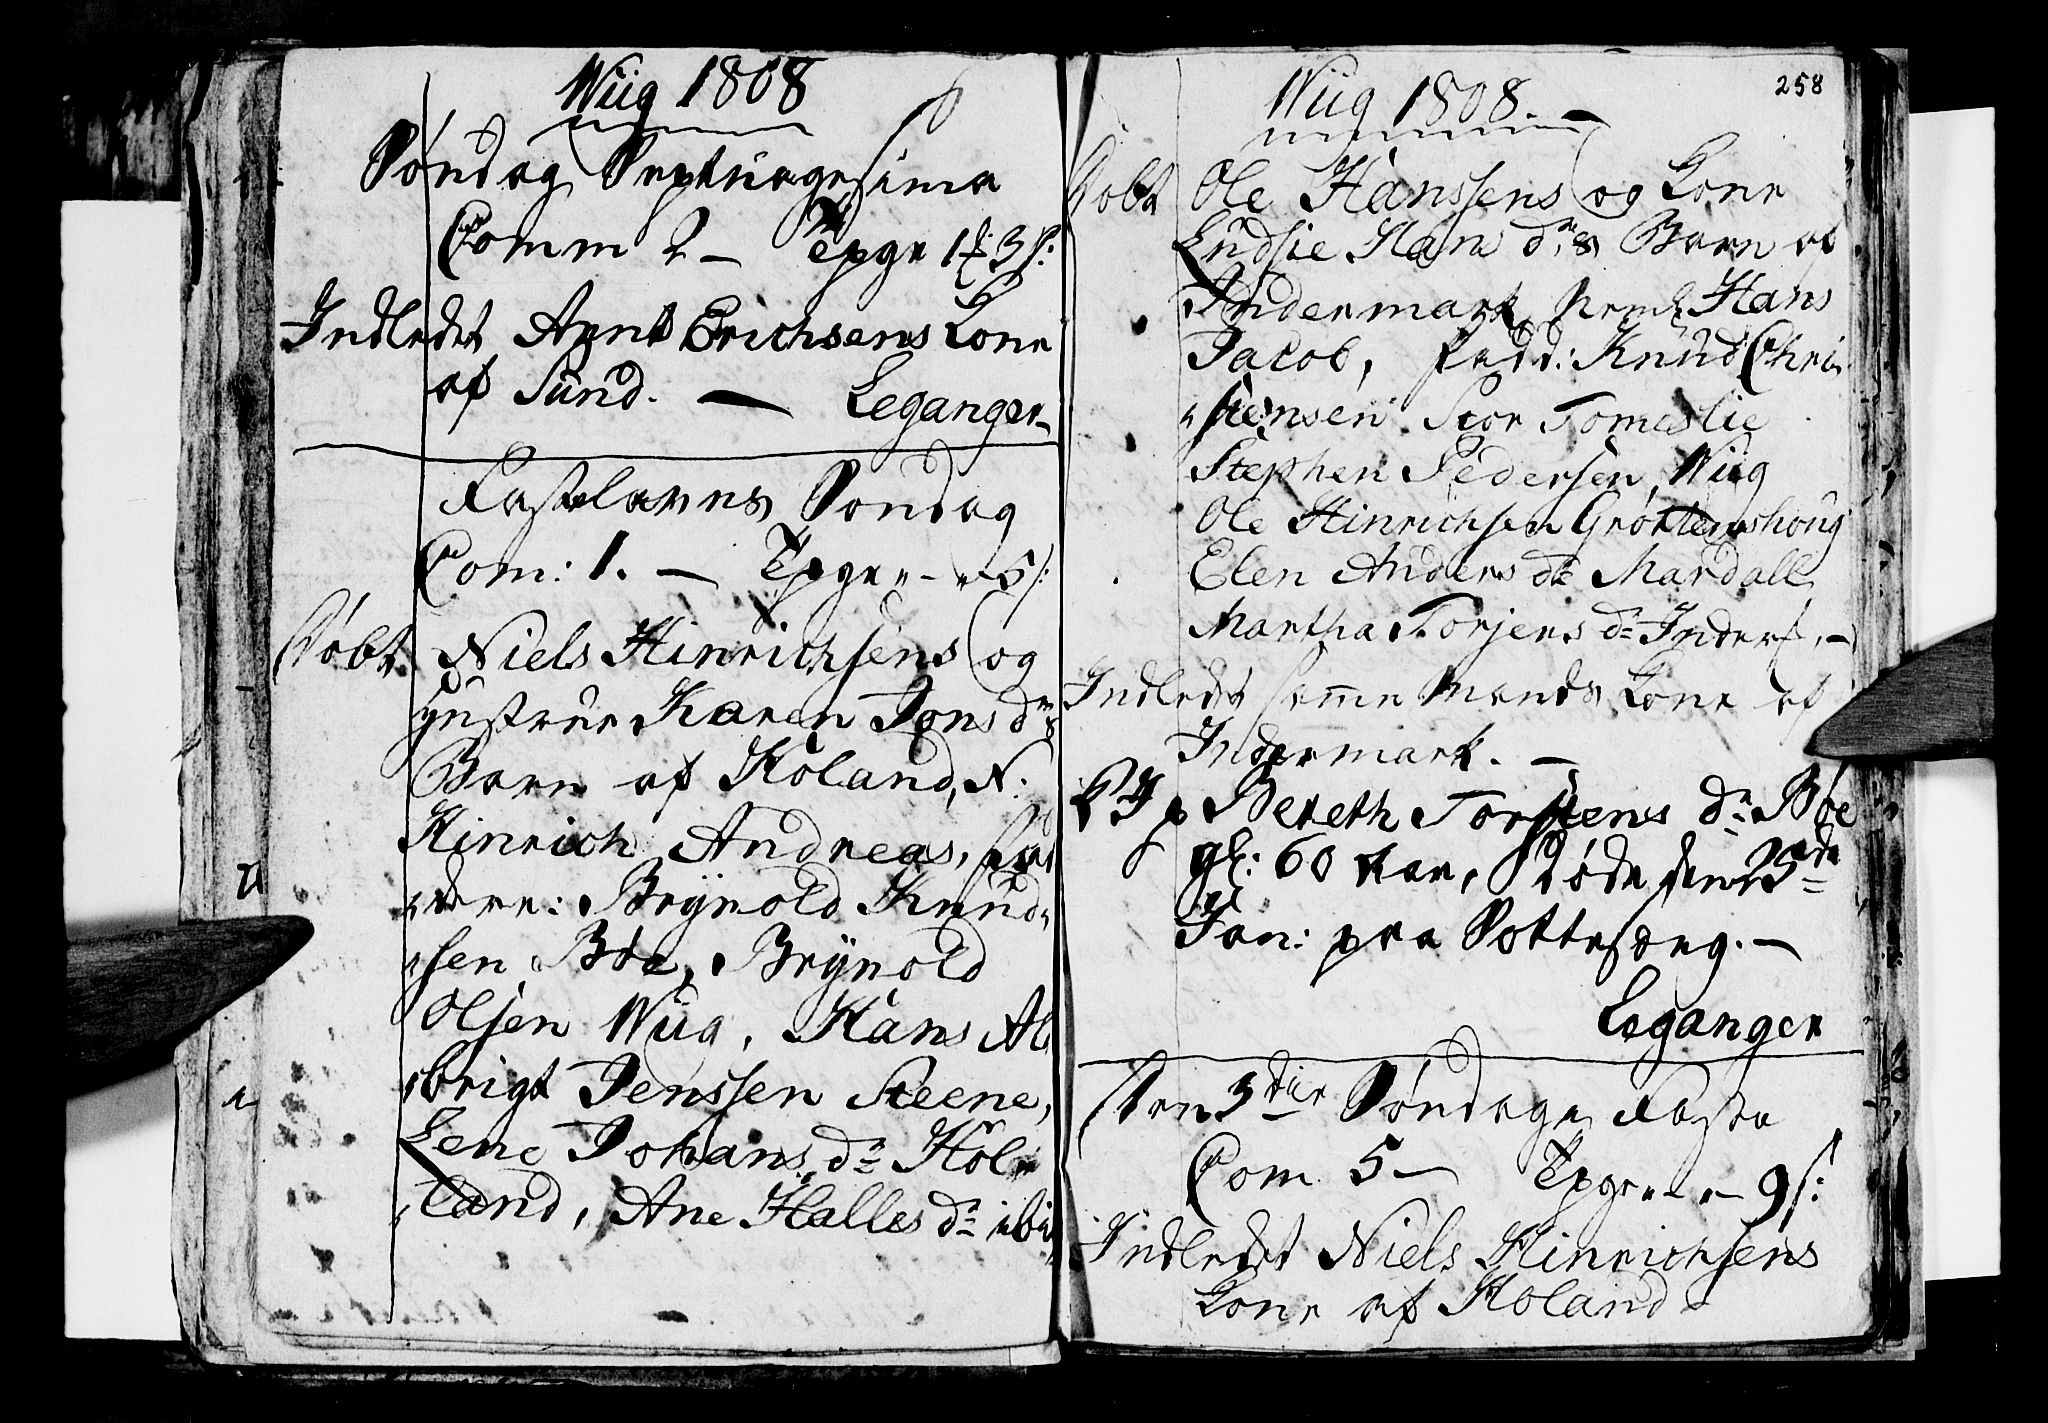 Wiig 1808
Søndag Septuagesima
Comm 2 — Tpge 1 3 s:
Indledet Arnt Erichsens Kone
af Sund. — Leganger
Fastelavns Søndag
Com: 1. — Tpge „ - „ 5 s:
Døbt Niels Hinrichsens og
Hustrue Karen Jons d:rs
Barn af Høland, N:
Hinrich Andreas, Fad
„dere: Brynold Knud„
„sen Bøe, Brynold
Olsen Wiig, Hans Al
„brigt Jenssen Steene,
Lene Johans d:r Høl„
„land, Ane Halles d:r ibid
258
Wiig 1808. —
Døbt Ole Hanssens og Kone
Hans d:rs Barn af
Indermark, Neml: Hans
Jacob, Fadd: Knud Chri
„stensen Stor Tomeslie
Stephen Pedersen Wiig
Ole Hinrichsen Grøttemshoug
Elen Anders d:r Mardall
Martha Torjers d:r Inderf. —
Indledet samme Mands Kone af
Indermark. —
Bereth Torstens d:r Bøe
gl: 60 Aar, Døde den 23de
Jan: paa Sottesæng. —
Leganger
Den 3die Søndag Faste
Com 5 — Tpge „ - „ - 9 s:
Indledet Niels Hinrichsens
Kone af Høland